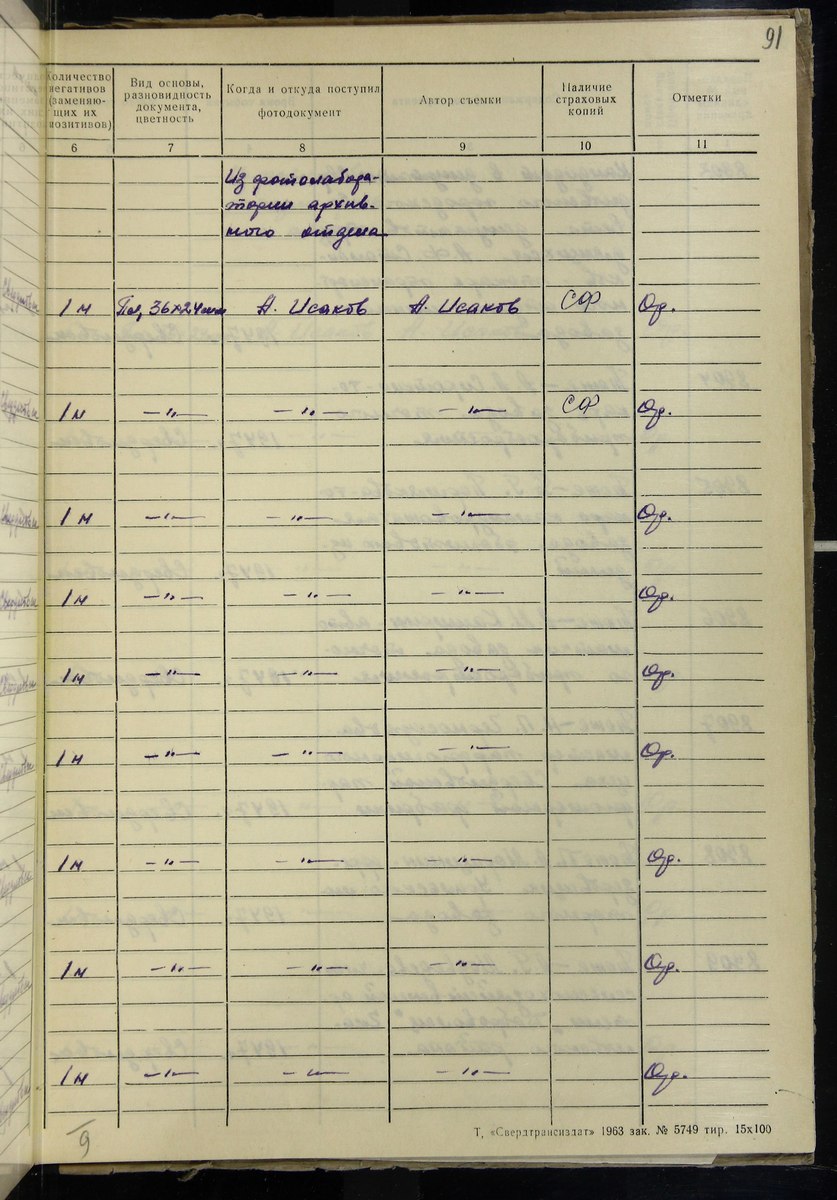 91
Количество негативов (заменяю- щих их позитивов) | Вид основы, разновидность документа, цветность | Когда и откуда поступил фотодокумент | Автор съемки | Наличие страховых копий | Отметки
6 | 7 | 8 | 9 | 10 | 11
Из фотолабора-
тории архив-
ного отдела
1н | Пл, 36х24мм | А. Исаков | А. Исаков | СФ | Ор.
1н | —"— | —"— | —"— | СФ | Ор.
1н | —"— | —"— | —"— | Ор.
1н | —"— | —"— | —"— | Ор.
1н | —"— | —"— | —"— | Ор.
1н | —"— | —"— | —"— | Ор.
1н | —"— | —"— | —"— | Ор.
1н | —"— | —"— | —"— | Ор.
1н | —"— | —"— | —"— | Ор.
9
Т, «Свердтрансиздат» 1963 зак. № 5749 тир. 15х100